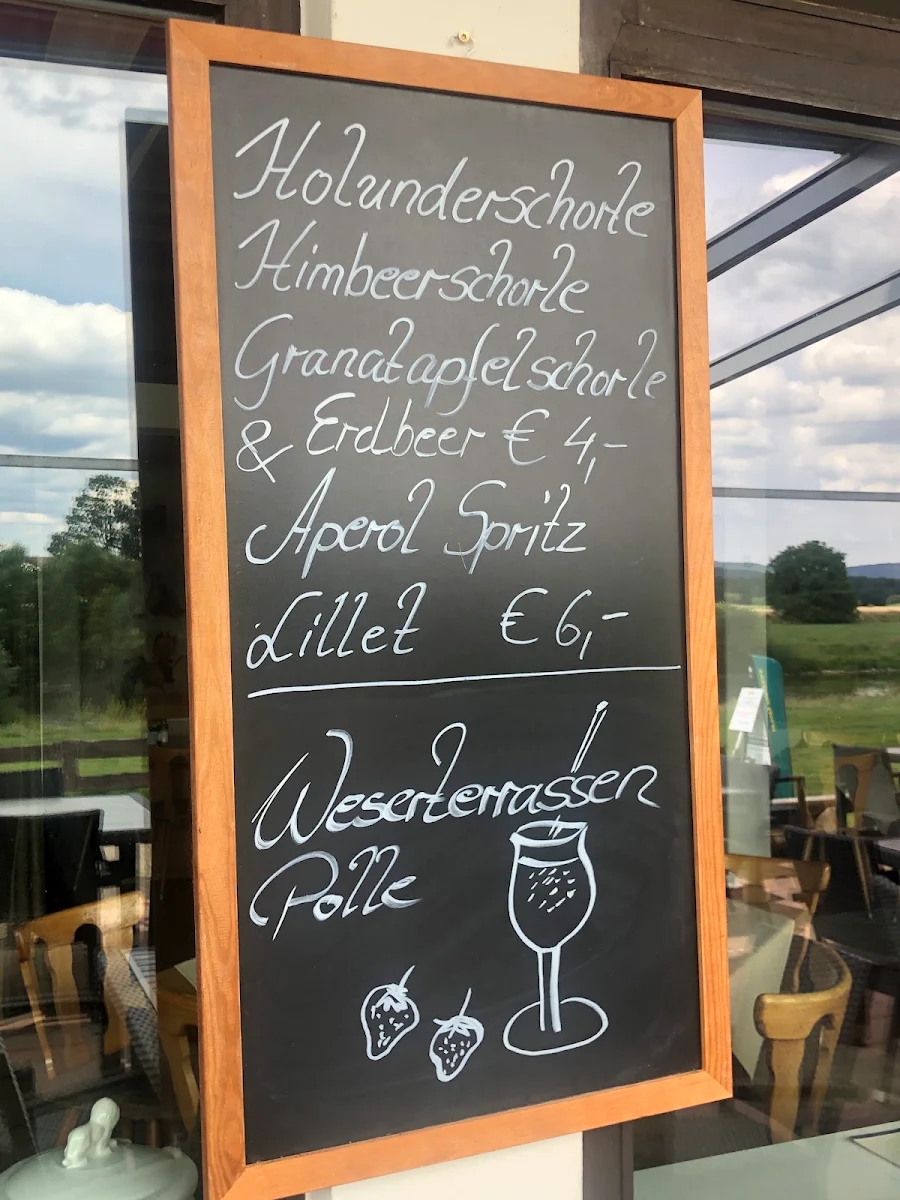 Holunderschorle
Himbeerschorle
Granatapfelschorle
& Erdbeer € 4,-
Aperol Spritz
Lillet € 6,-
Weserterrassen
Polle